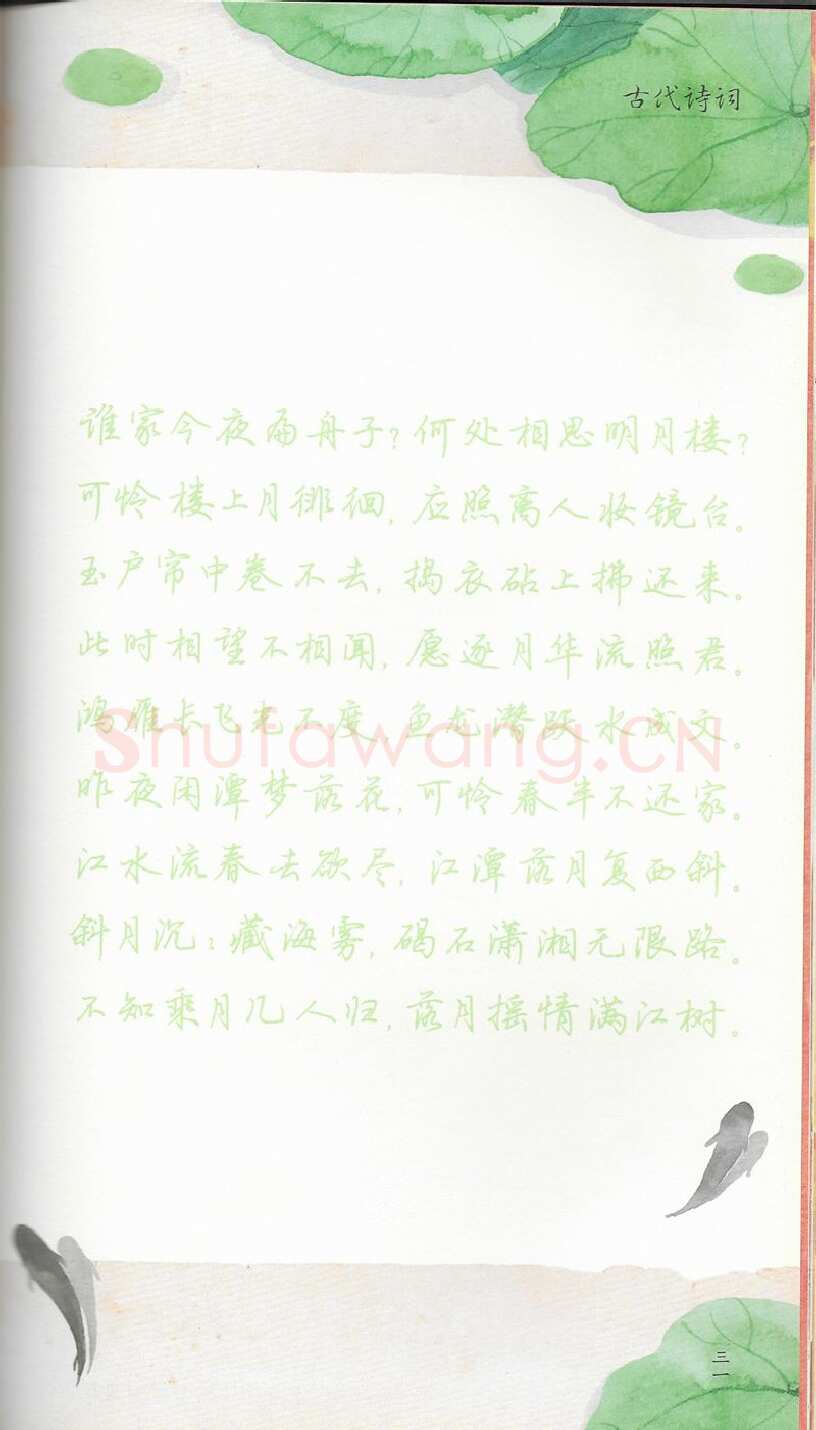 古代诗词
谁家今夜扁舟子?何处相思明月楼?
可怜楼上月徘徊,应照离人妆镜台。
玉户帘中卷不去,捣衣砧上拂还来。
此时相望不相闻,愿逐月华流照君。
鸿雁长飞光不度,鱼龙潜跃水成文。
Shufawang.CN
昨夜闲潭梦落花,可怜春半不还家。
江水流春去欲尽,江潭落月复西斜。
斜月沉:藏海雾,碣石潇湘无限路。
不知乘月几人归,落月摇情满江树。
三一